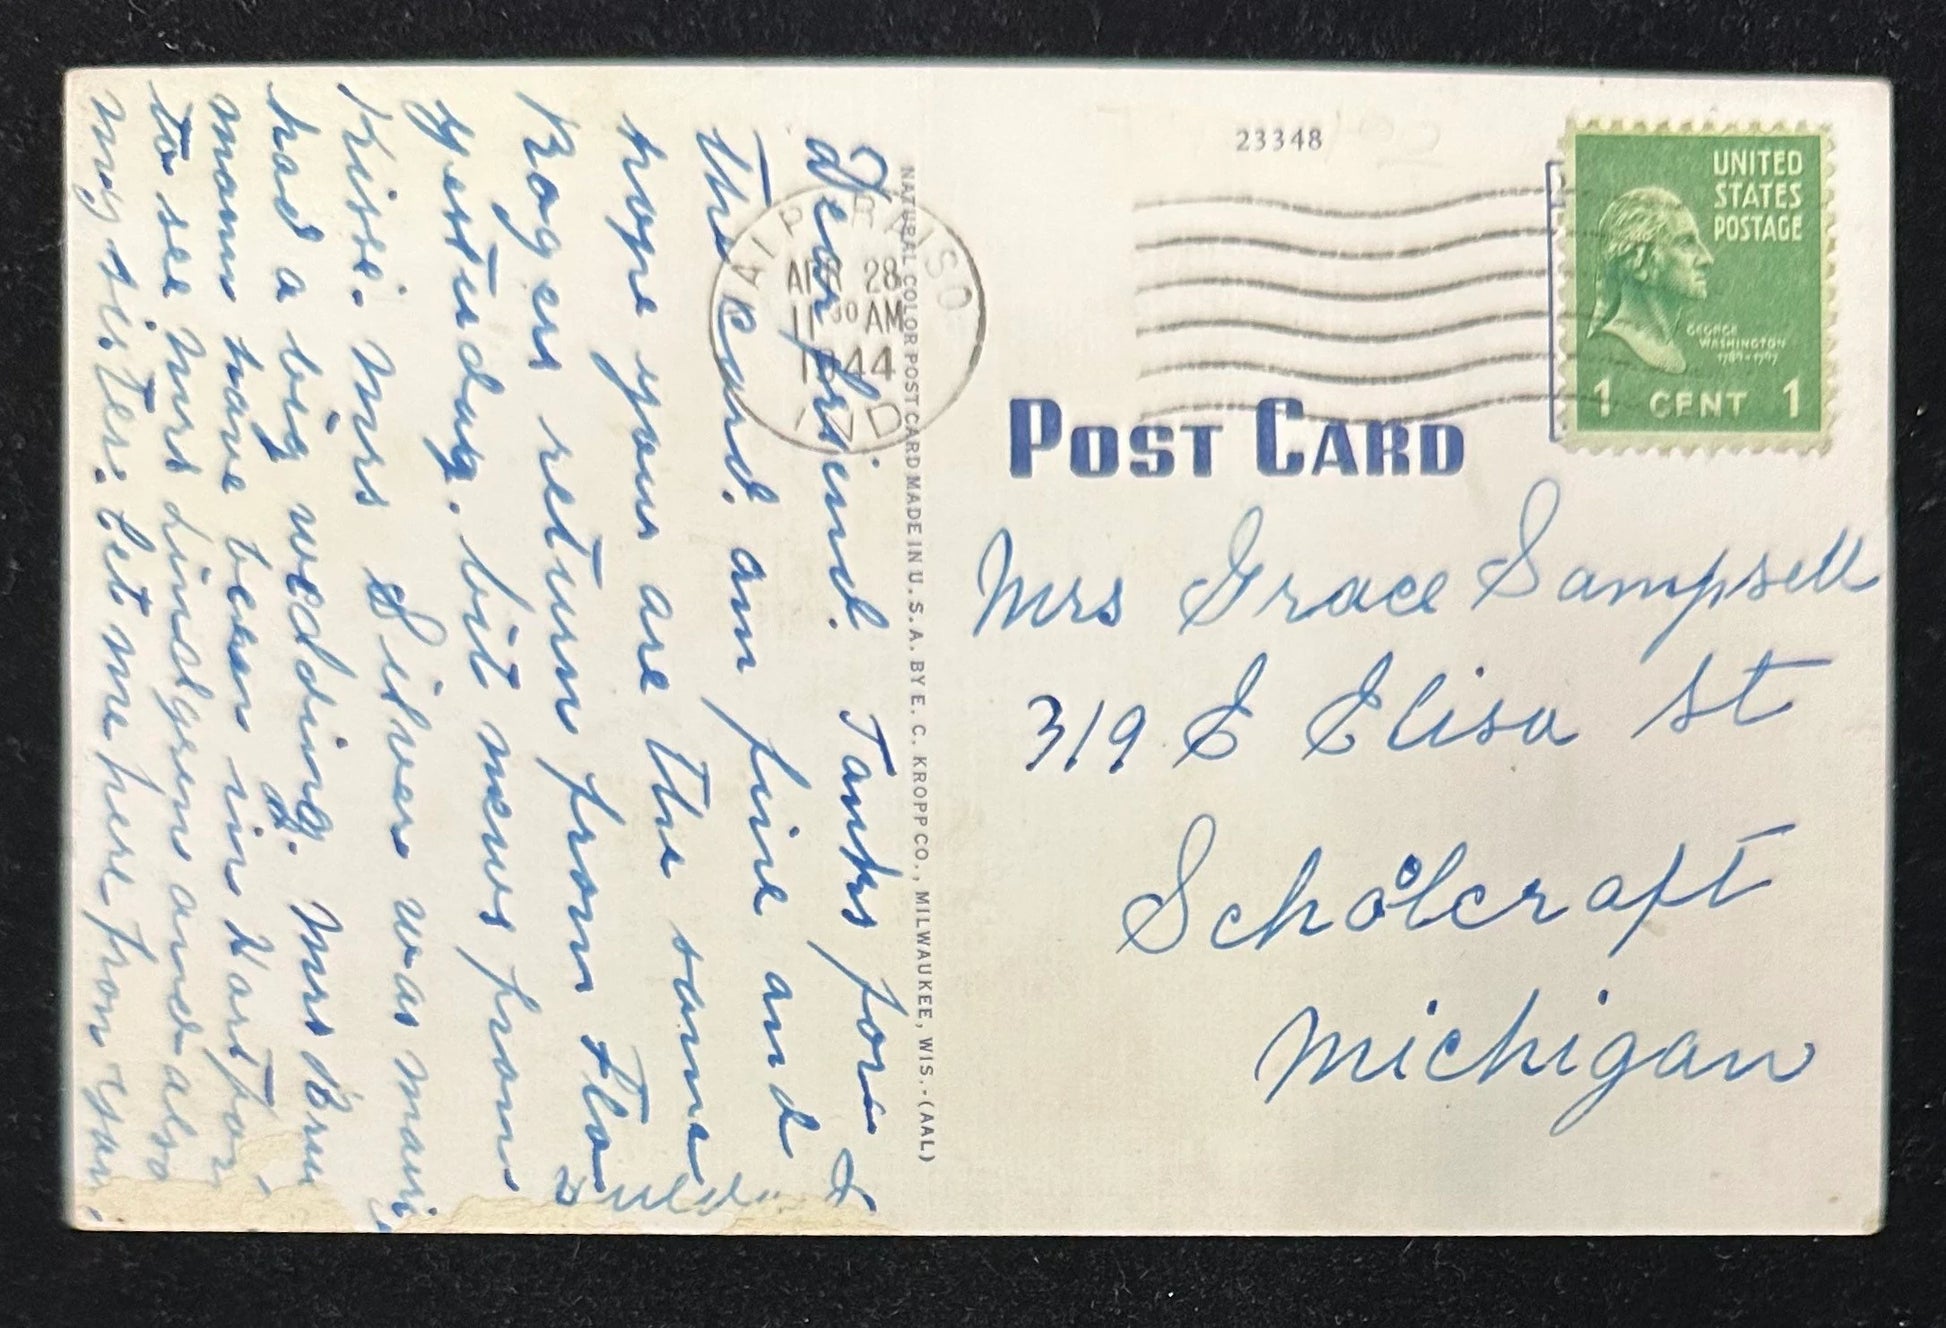 23348
UNITED
STATES
POSTAGE
GEORGE
WASHINGTON
1789-1797
1 CENT 1
VALPARAISO
APR 28
11 30 AM
1944
IND
POST CARD
Mrs Grace Sampsell
319 E Elisa St
Schoolcraft
Michigan
NATURAL COLOR POST CARD MADE IN U.S.A. BY E. C. KROPP CO., MILWAUKEE, WIS.-(AAL)
Dear friend. Tanks for
the card. am fine and
hope you are the same
Rogers return from Flo
yesturday. bit news from
Mrs Silver was
had a big wedding. Mrs
mann have been in Hartfor
to see Mrs Lindgren and also
my sister. let me here from you